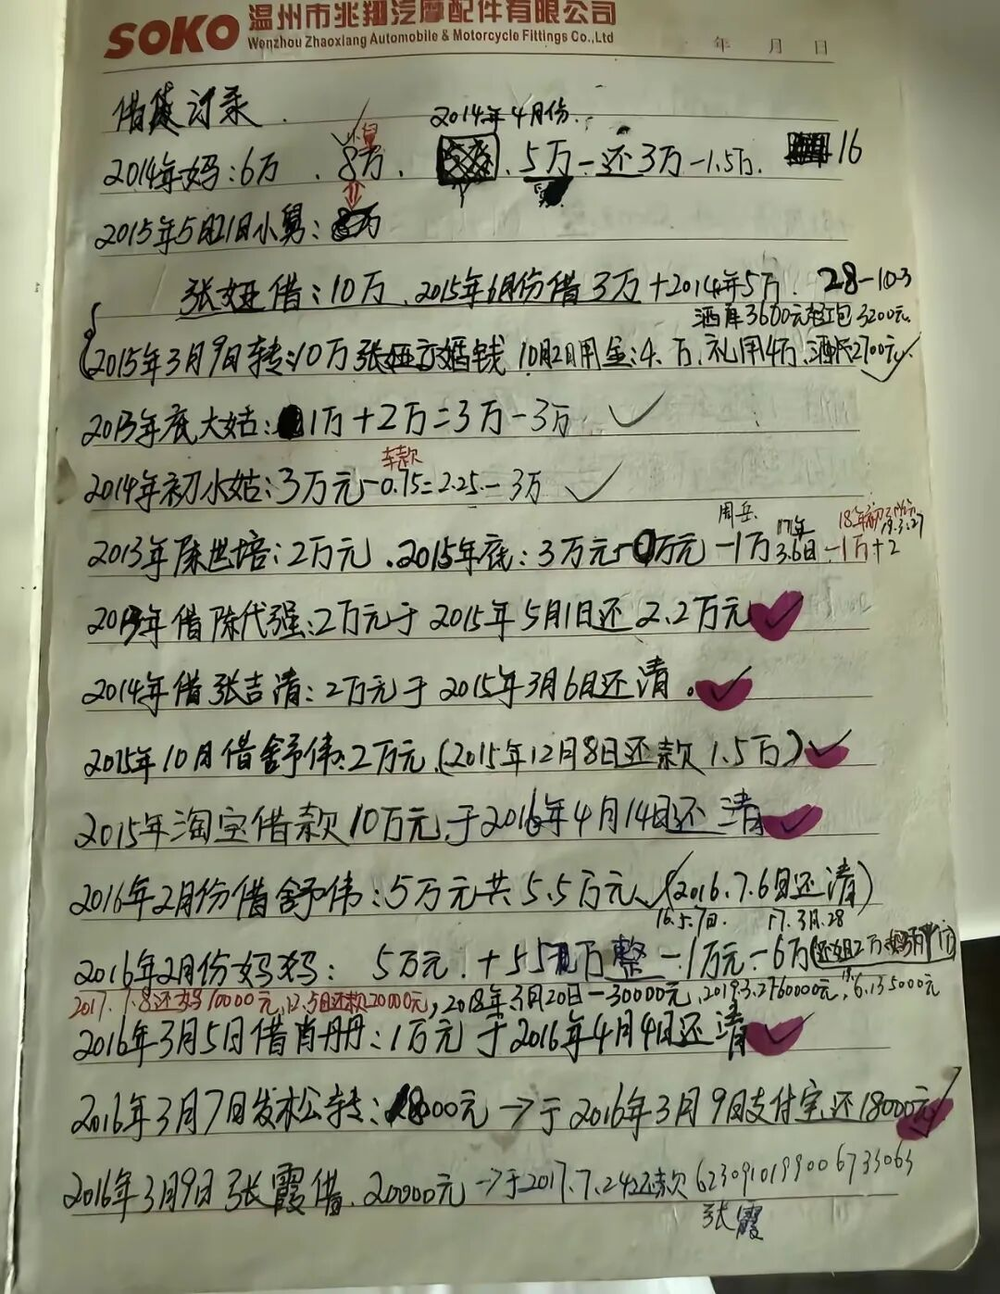 SOKO 温州市兆翔汽摩配件有限公司
Wenzhou Zhaoxiang Automobile & Motorcycle Fittings Co.,Ltd
年 月 日
借贷记录
2014年4月份
2014年妈:6万 . 8万 . 5万-还3万-1.5万. 16
2015年5月21日小舅:
张娅借:10万、2015年6月份借3万+2014年5万. 28-10-3
酒席3600元红包3200元
2015年3月9日转:10万张娅 婚钱 10月2日用金:4.万、礼用4万、 2700元
2013年底大姑: 1万+2万=3万-3万
车款
2014年初小姑:3万元-0.75=2.25-3万
周岳 17年 18年初 19.3.27
2013年陈世培:2万元、2015年底:3万元- 万元-1万3.6日-1万+2
2013年借陈代强:2万元于2015年5月1日还2.2万元
2014年借张吉清:2万元于2015年3月6日还清.
2015年10月借舒伟:2万元.(2015年12月8日还款1.5万)
2015年淘宝借款10万元,于2016年4月14日还清
2016年2月份借舒伟:5万元共5.5万元、(2016.7.6日还清)
16.5.7日. 17.3月.28
2016年2月份妈妈: 5万元.+5.5 万整-1万元-6万(还姐2万
2017.7.8还妈10000元,12.5日还款20000元,2018年3月20日-30000元,2019.3.27 60000元, 6.13 5000元
2016年3月5日借肖丹丹:1万元于2016年4月4日还清
2016年3月7日发 公转:18000元→于2016年3月9日支付宝还18000元
2016年3月9日张霞借.20000元→于2017.7.24还款6230910199006733063
张霞